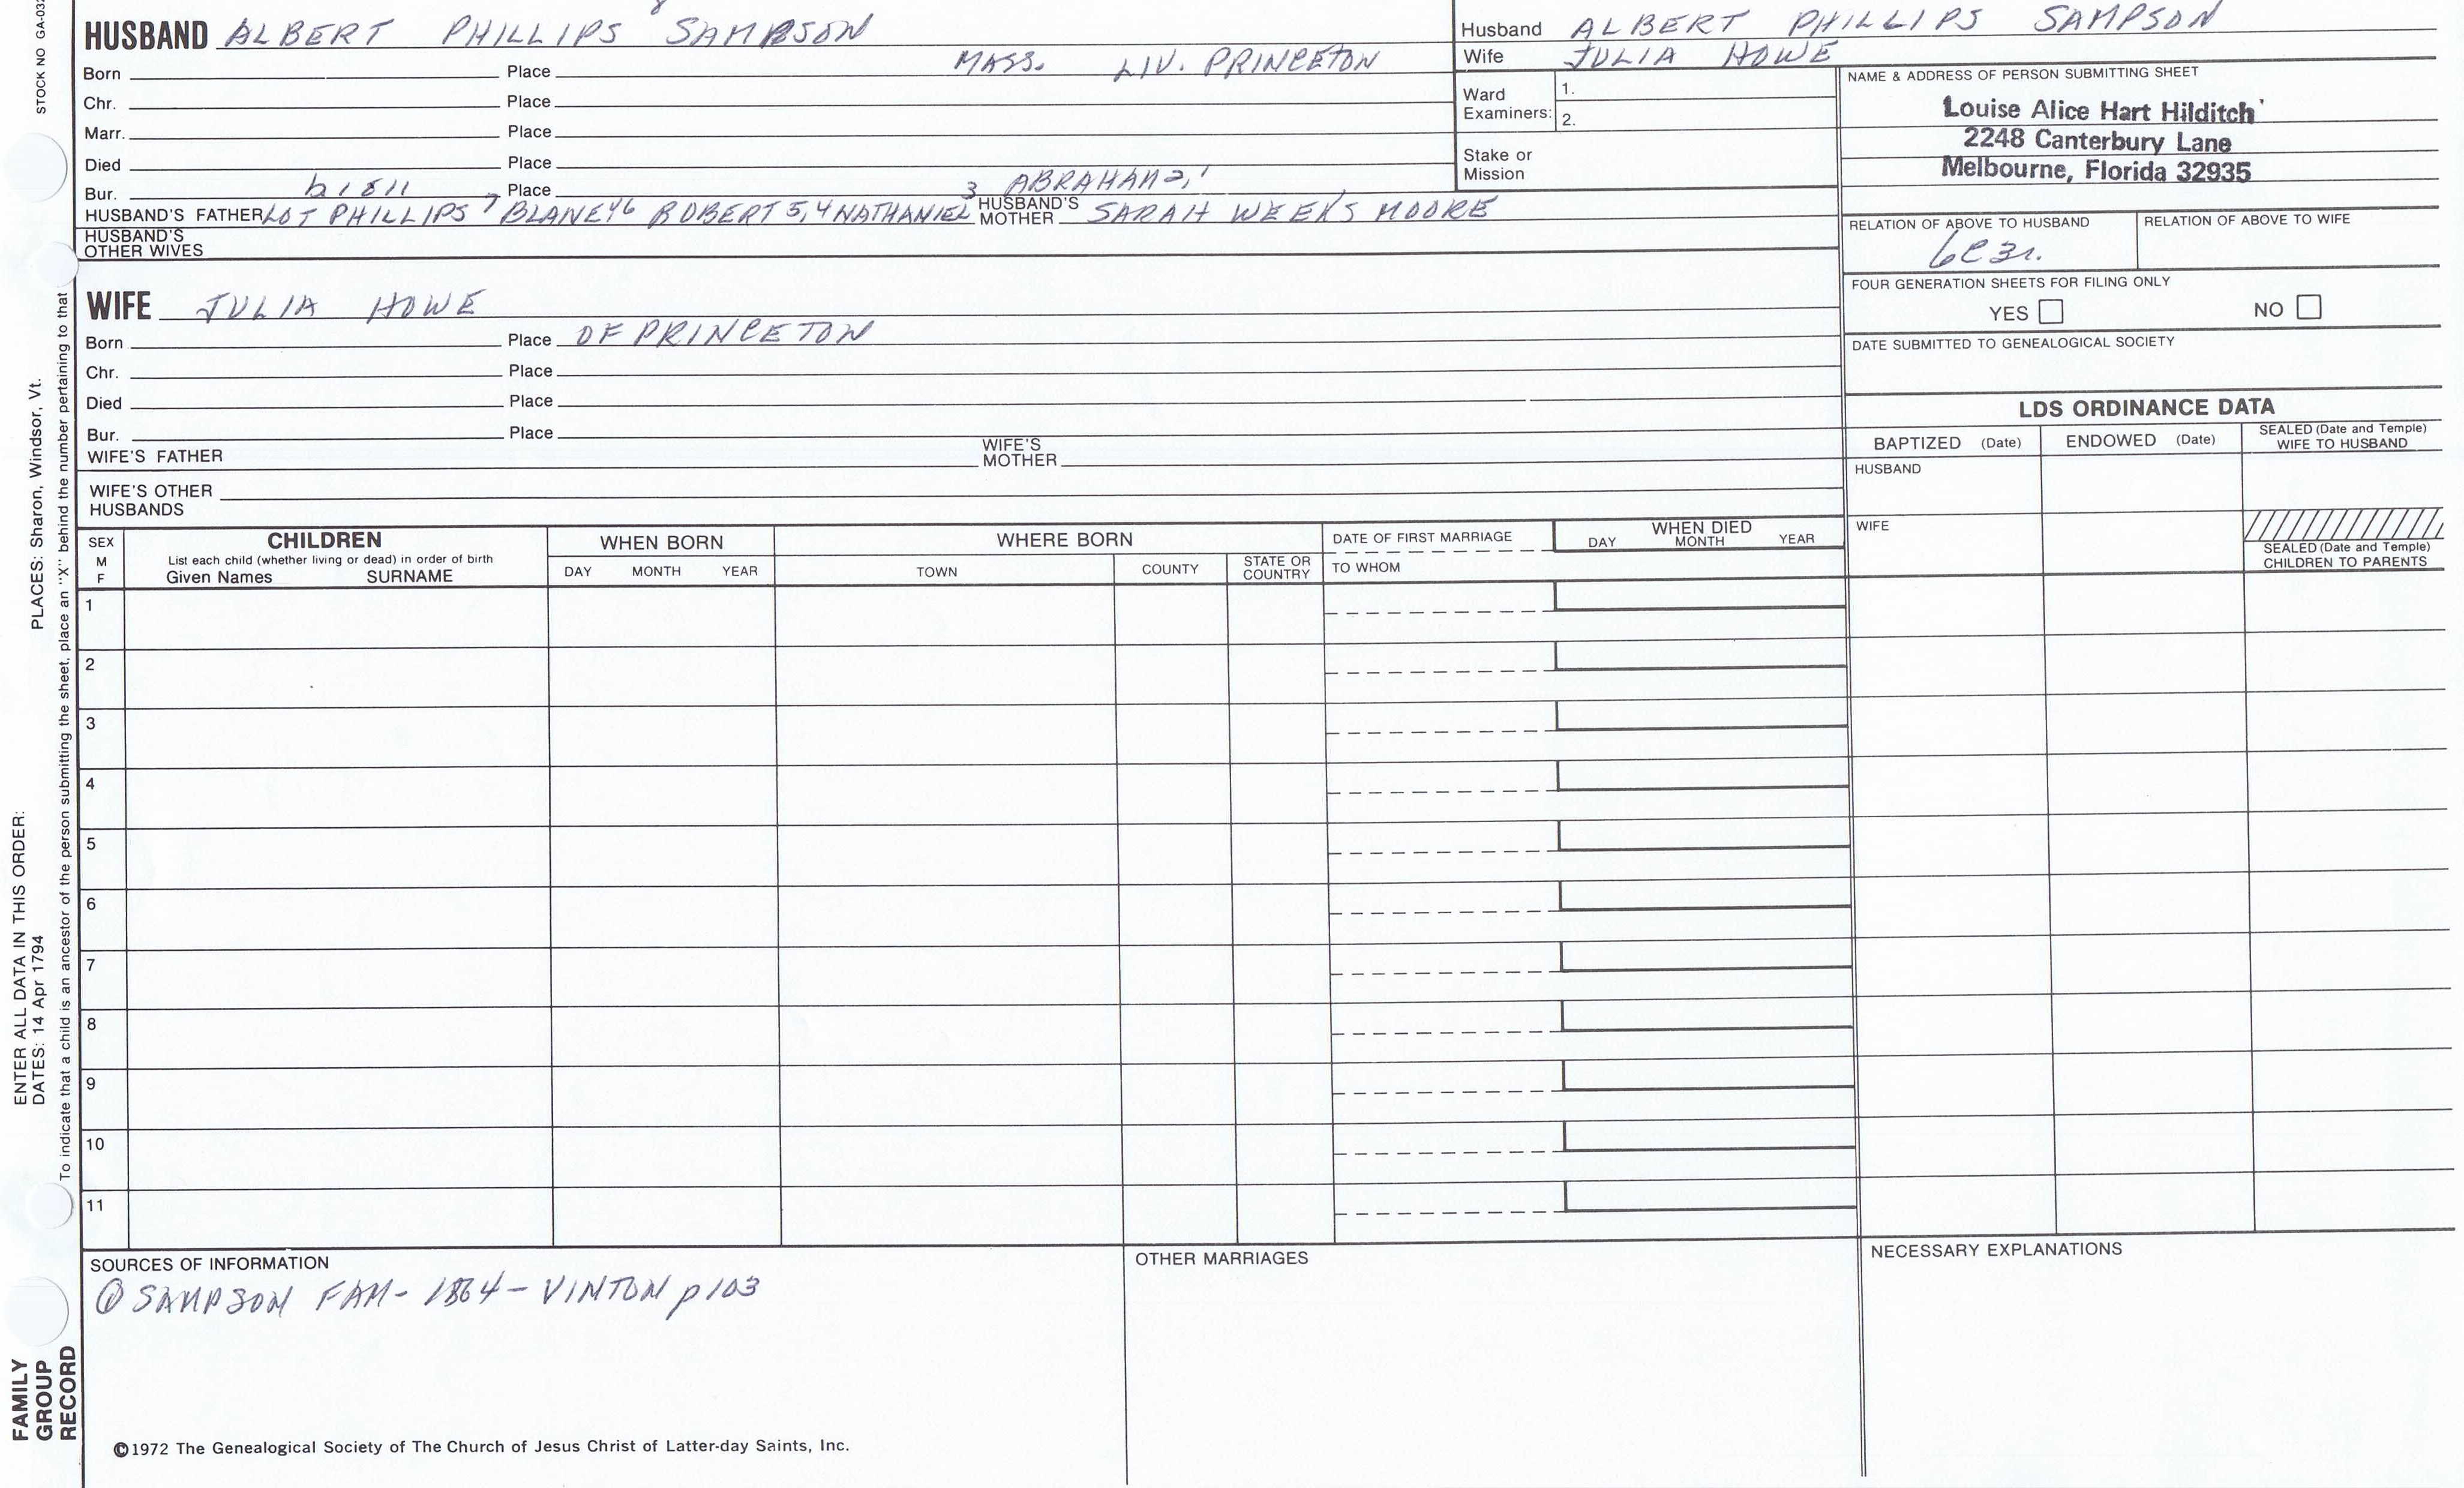 STOCK NO GA-032
HUSBAND ALBERT PHILLIPS SAMPSON 8
Born Place MASS. LIV. PRINCETON
Chr. Place
Marr. Place
Died Place
Bur. b 1811 Place 3 ABRAHAM 2, 1
HUSBAND'S FATHER LOT PHILLIPS 7 BLANEY 6 ROBERT 5, 4 NATHANIEL HUSBAND'S MOTHER SARAH WEEKS MOORE
HUSBAND'S OTHER WIVES
Husband ALBERT PHILLIPS SAMPSON
Wife JULIA HOWE
Ward Examiners: 1.
2.
Stake or Mission
NAME & ADDRESS OF PERSON SUBMITTING SHEET
Louise Alice Hart Hilditch
2248 Canterbury Lane
Melbourne, Florida 32935
RELATION OF ABOVE TO HUSBAND RELATION OF ABOVE TO WIFE
6C3r.
FOUR GENERATION SHEETS FOR FILING ONLY
YES NO
DATE SUBMITTED TO GENEALOGICAL SOCIETY
WIFE JULIA HOWE
Born Place OF PRINCETON
Chr. Place
Died Place
Bur. Place
WIFE'S FATHER WIFE'S MOTHER
WIFE'S OTHER HUSBANDS
LDS ORDINANCE DATA
BAPTIZED (Date) ENDOWED (Date) SEALED (Date and Temple) WIFE TO HUSBAND
HUSBAND
WIFE
SEALED (Date and Temple) CHILDREN TO PARENTS
SEX M F
CHILDREN
List each child (whether living or dead) in order of birth
Given Names SURNAME
WHEN BORN
DAY MONTH YEAR
WHERE BORN
TOWN COUNTY STATE OR COUNTRY
DATE OF FIRST MARRIAGE
TO WHOM
WHEN DIED
DAY MONTH YEAR
1
2
3
4
5
6
7
8
9
10
11
SOURCES OF INFORMATION
① SAMPSON FAM- 1864 - VINTON p103
OTHER MARRIAGES
NECESSARY EXPLANATIONS
©1972 The Genealogical Society of The Church of Jesus Christ of Latter-day Saints, Inc.
FAMILY
GROUP
RECORD
ENTER ALL DATA IN THIS ORDER:
DATES: 14 Apr 1794 PLACES: Sharon, Windsor, Vt.
To indicate that a child is an ancestor of the person submitting the sheet, place an "X" behind the number pertaining to that